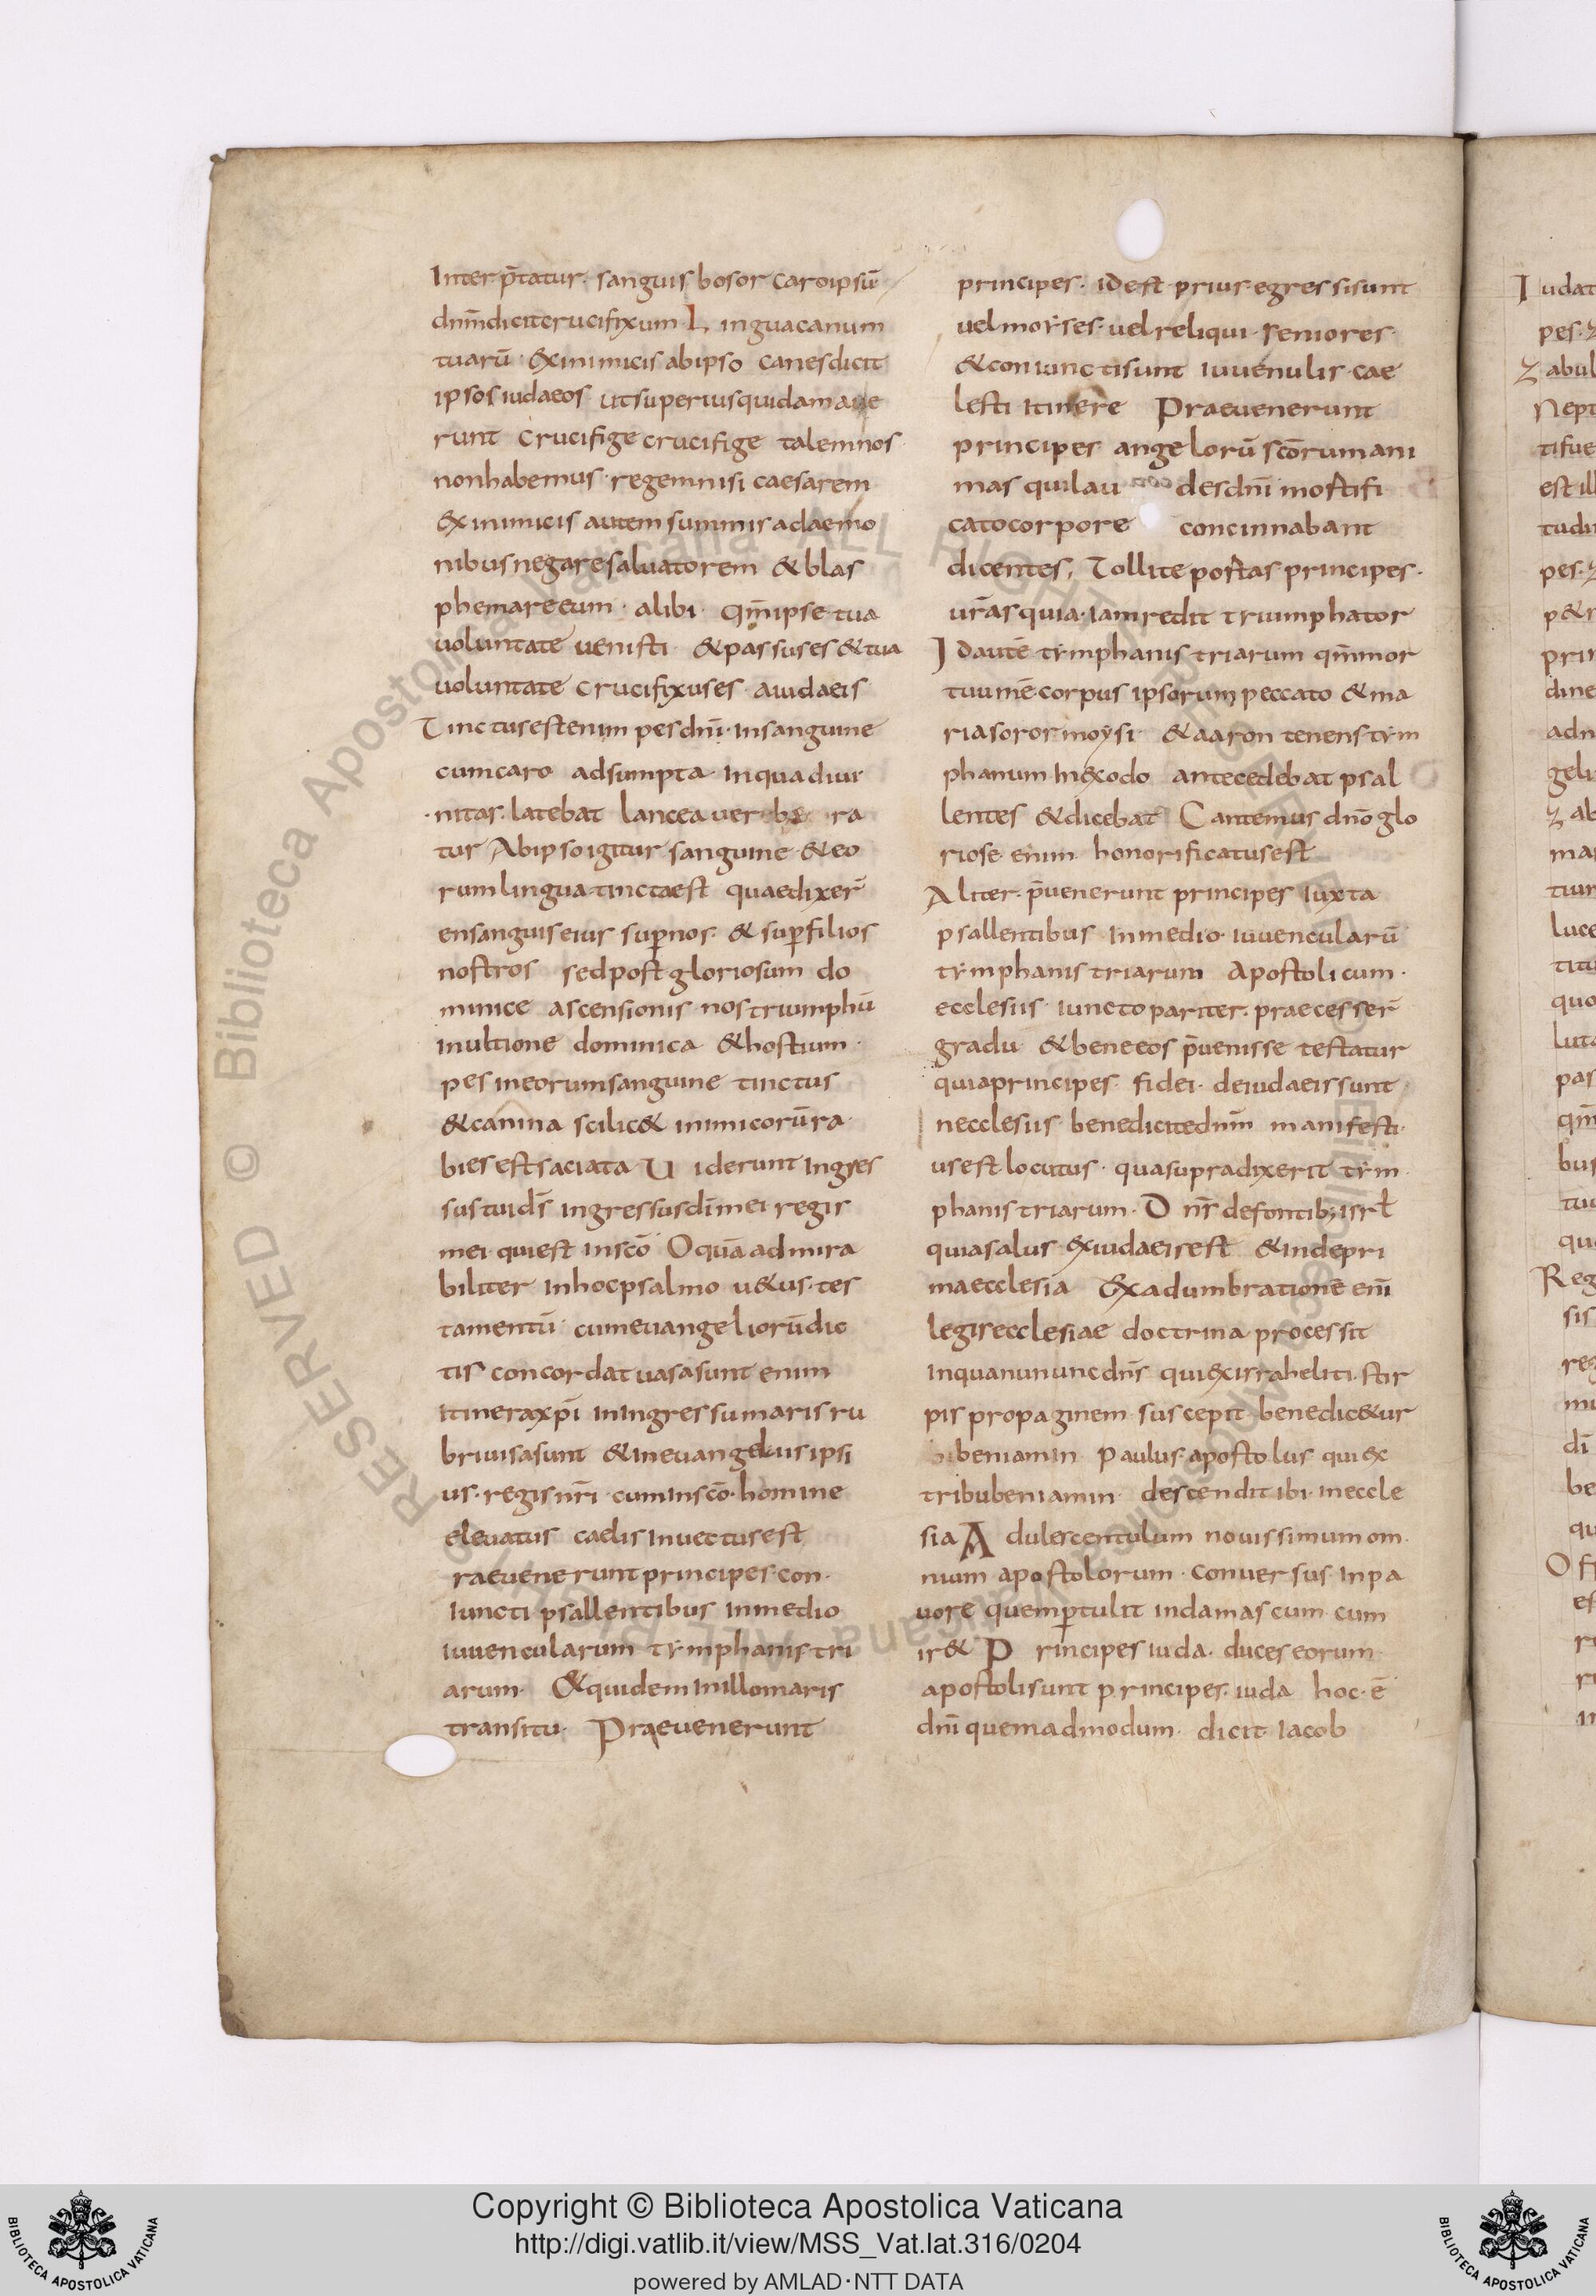 Inter p̄tatur· sanguis bosor caroipsū
dnm̄dicitcrucifixum Linguacanum
tuarū· &xinimicis abipso canesdicit
ipsos iudaeos utsuperiusquidamaue
runt crucifige crucifige talemnos·
nonhabemus· regemnisi caesarem
&xinimicis autem summis adaemo
nibusnegaresaluatorem &blas
phemareeum· alibi· qm̄ipse tua
uoluntate uenisti &passuses&tua
uoluntate crucifixuses· aiudaeis
Tinctusestenim pesdnī· insanguine
cumcaro adsumpta· inquadiui
·nitas· latebat lanceauer be ra
tur Abipsoigitur sanguine &eo
rumlingua tinctaest quaedixer̄
ensanguiseius sup̄nos· & sup̄filios
nostros sedpostgloriosum do
minice ascensionis nostriumphū
inultione dominica &hostium·
pes ineorumsanguine tinctus
&canina scilic& inimicorūra·
bies estsaciata Uiderunt ingres
sustuids̄ ingressusdīmei regis
mei quiest inscō Oquāadmira
biliter inhocpsalmo u&us·tes
tamentū cumeuangeliorūdic
tis concordat uasasunt enim
itineraxpī iningressumaris ru
briuisasunt &ineuangeliisipsi
us· regisnrī· cuminscō·homine
eleuatus caelisinuectusest
raeuenerunt principes·con·
iuncti psallentibus inmedio
iuuencularum tẏmphanistri
arum· &quidem inillomaris
transitu· Praeuenerunt
principes· idest prius·egressisunt
uelmoẏses· uelreliqui· seniores·
&coniunctisunt iuuenulis·cae
lesti itinere Praeuenerunt
principes angelorū scōrumani
mas quilau desdnī mostifi
catocorpore concinnabant
dicentes, Tollite portas principes·
ur̄asquia·iamredit triumphator
Idautē tẏmphanis triarum qm̄mor
tuumē·corpus ipsorumpeccato &ma
riasoror moẏsi· &aaron tenenstẏm
phanum in&xodo antecedebat psal
lentes &dicebat Cantemus dnōglo
riose enim· honorificatusest
Aliter· p̄uenerunt principes iuxta
psallentibus inmedio iuuencularū
tẏmphanis triarum Apostolicum·
ecclesiis· iunctopariter· praecesser̄
gradu &beneeos p̄uenisse testatur
quiaprincipes· fidei· deiudaeissunt
necclesiis· benedicitednm̄ manifesti·
usestlocutus· quasupradixerit tẏm
phanistriarum· Dns̄ defontib; isrl̄
quiasalus &xiudaeisest &indepri
maecclesia &xadumbrationē enī
legisecclesiae doctrina processit
inquanununcdns̄ qui&xisraheliti·stir
pis propaginem suscepit benedic&ur
ibi beniamin Paulus·apostolus qui&x
tribubeniamin· descendit ibi· ineccle
sia Adulescentulum nouissimumom·
nium apostolorum· conuersus· inpa
uore quemp̄tulit indamascum cum
ir& Principes iuda· duceseorum
apostolisunt principes· iuda hoc·ē
dnī quemadmodum· dicit Iacob
Copyright © Biblioteca Apostolica Vaticana
http://digi.vatlib.it/view/MSS_Vat.lat.316/0204
powered by AMLAD·NTT DATA